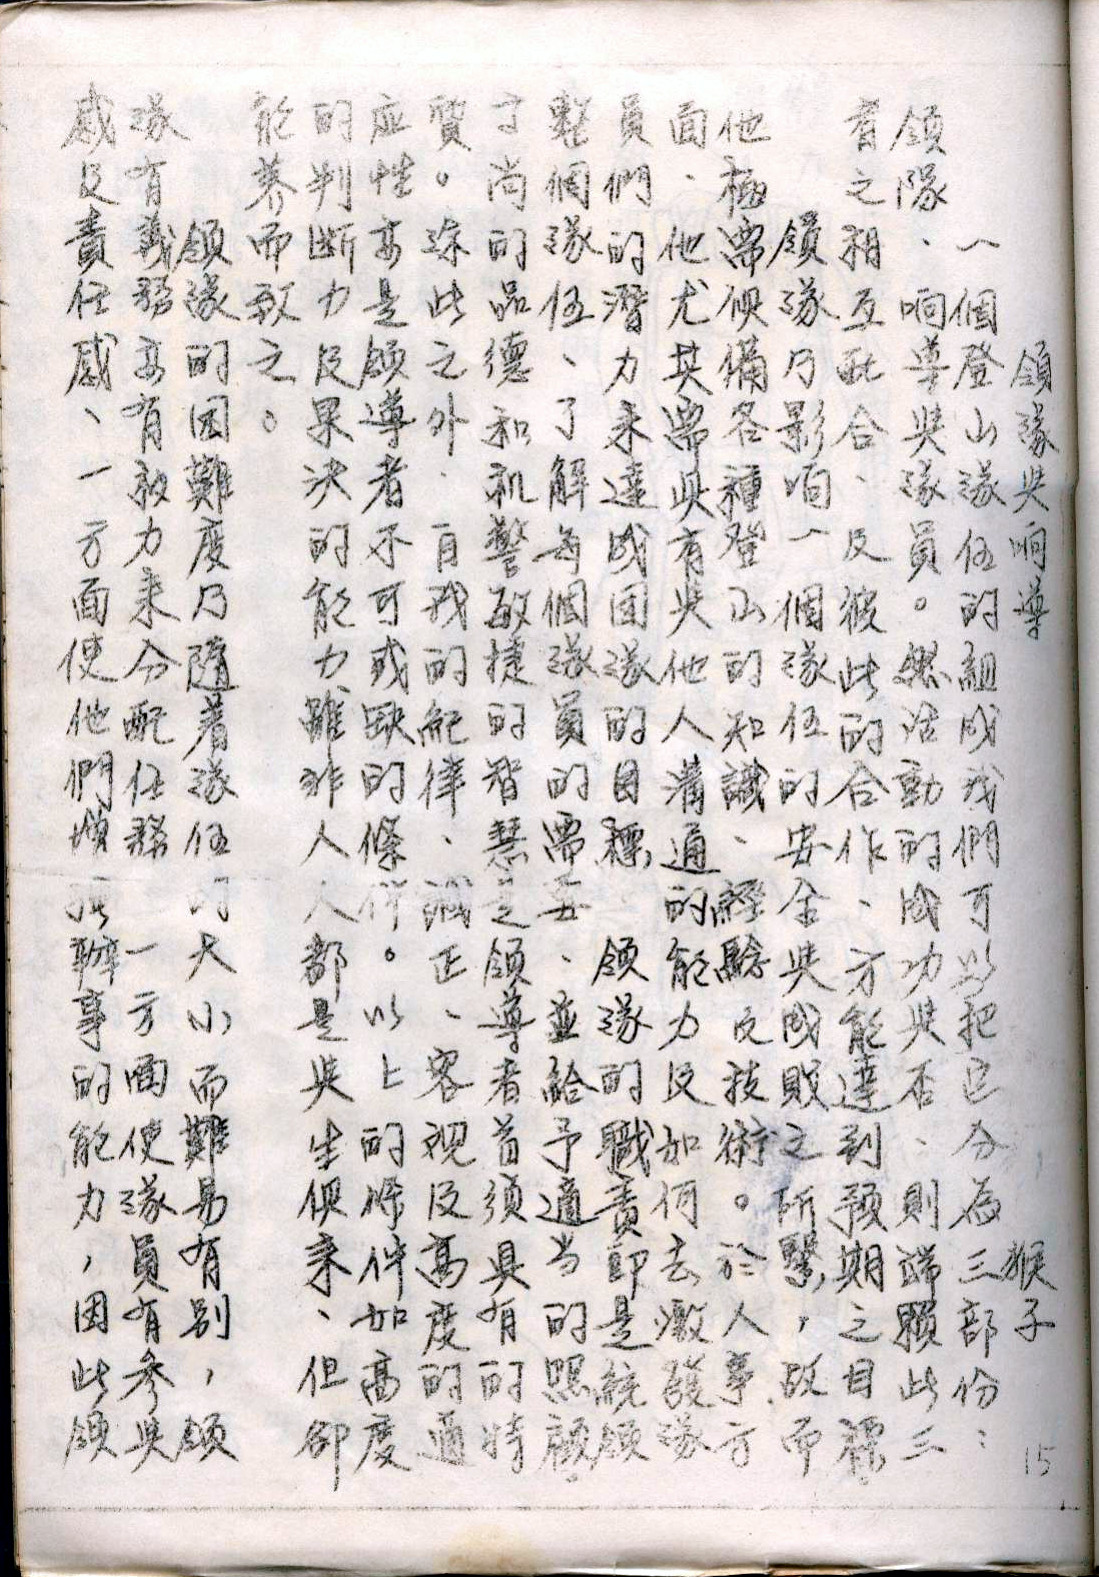 領隊與响導　　猴子
一個登山隊伍的組成我們可以把它分為三部份：
領隊、响導與隊員。然活動的成功與否、則端賴此三
者之相互配合、及彼此的合作、方能達到預期之目標。
領隊乃影响一個隊伍的安全與成敗之所繫，故而
他極需俱備各種登山的知識、經驗及技術。於人事方
面、他尤其需具有與他人溝通的能力及如何去激發隊
員們的潛力来達成团隊的目標 領隊的職責即是統領
整個隊伍、了解每個隊員的需要、並給予適当的照顧。
高尚的品德和机警敏捷的智慧是領導者首須具有的特
質。除此之外．自我的紀律、誠正、客观及高度的適
应性亦是領導者不可或缺的條件。以上的條件如高度
的判断力及果决的能力雖非人人都是與生俱来、但卻
能养而致之。
領隊的困難度乃隨着隊伍的大小而難易有別，領
隊有義務亦有效力来分配任務 一方面使隊員有参與
感及責任感、一方面使他們增强辦事的能力，因此領
15